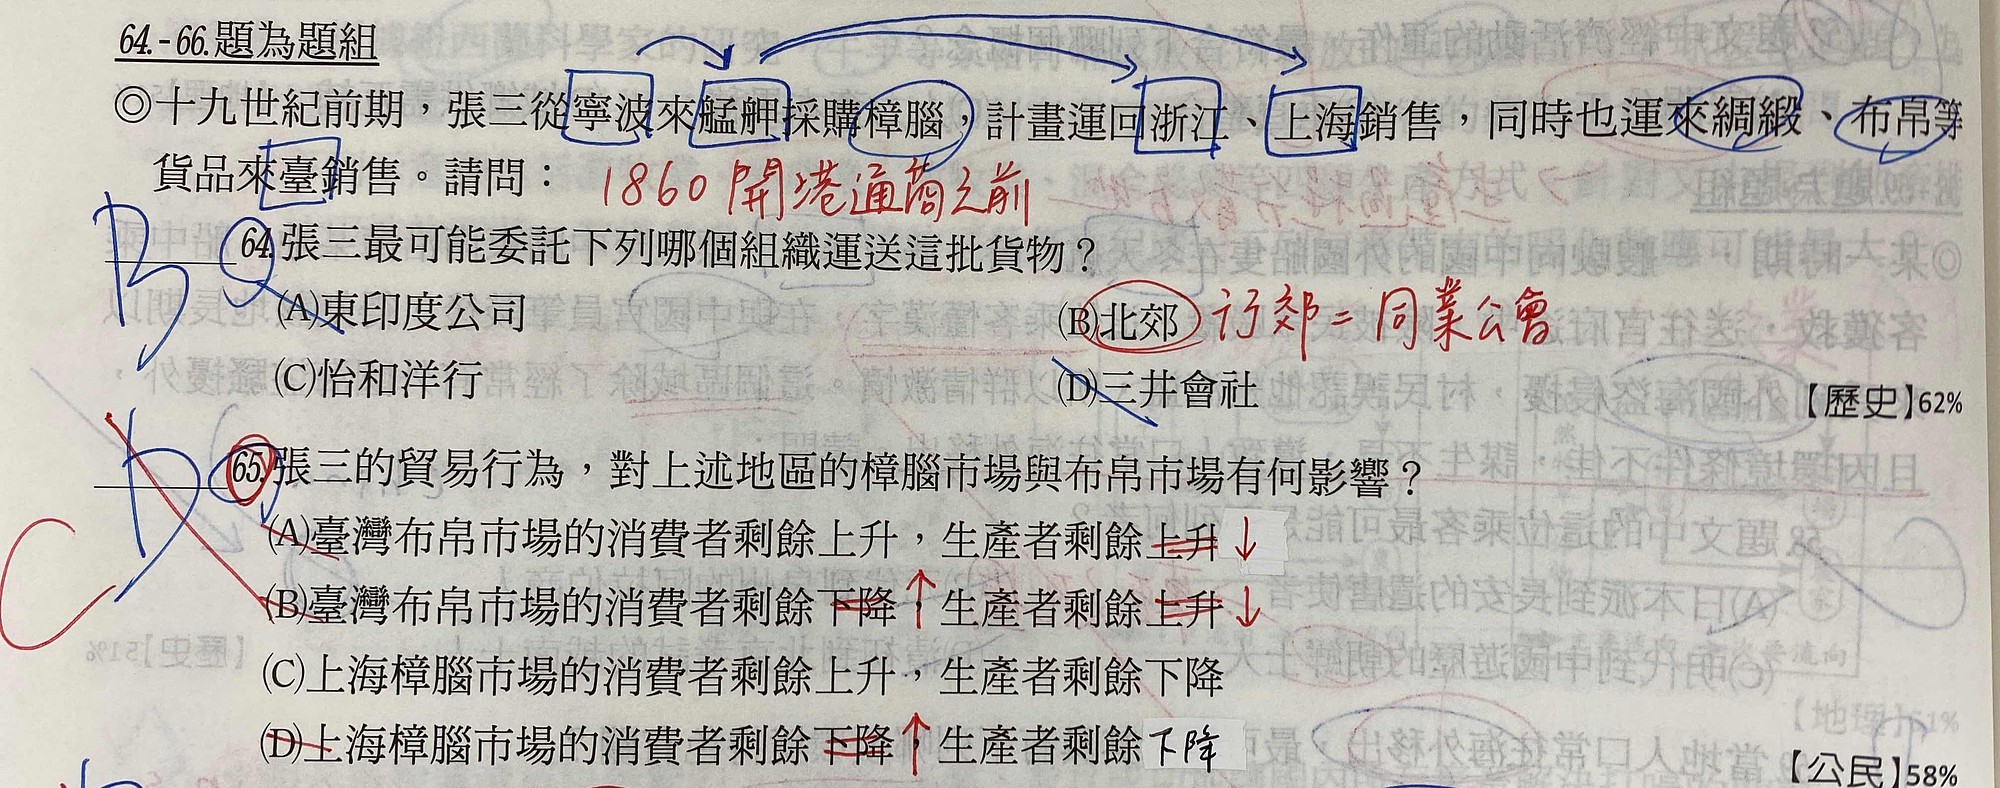 64.-66.題為題組
◎十九世紀前期，張三從寧波來艋舺採購樟腦，計畫運回浙江、上海銷售，同時也運來綢緞、布帛等
貨品來臺銷售。請問： 1860開港通商之前
B 64.張三最可能委託下列哪個組織運送這批貨物？
(A)東印度公司 (B)北郊 行郊=同業公會
(C)怡和洋行 (D)三井會社 【歷史】62%
D C 65.張三的貿易行為，對上述地區的樟腦市場與布帛市場有何影響？
(A)臺灣布帛市場的消費者剩餘上升，生產者剩餘上升↓
(B)臺灣布帛市場的消費者剩餘下降↑生產者剩餘上升↓
(C)上海樟腦市場的消費者剩餘上升，生產者剩餘下降
(D)上海樟腦市場的消費者剩餘下降↑生產者剩餘下降
【公民】58%